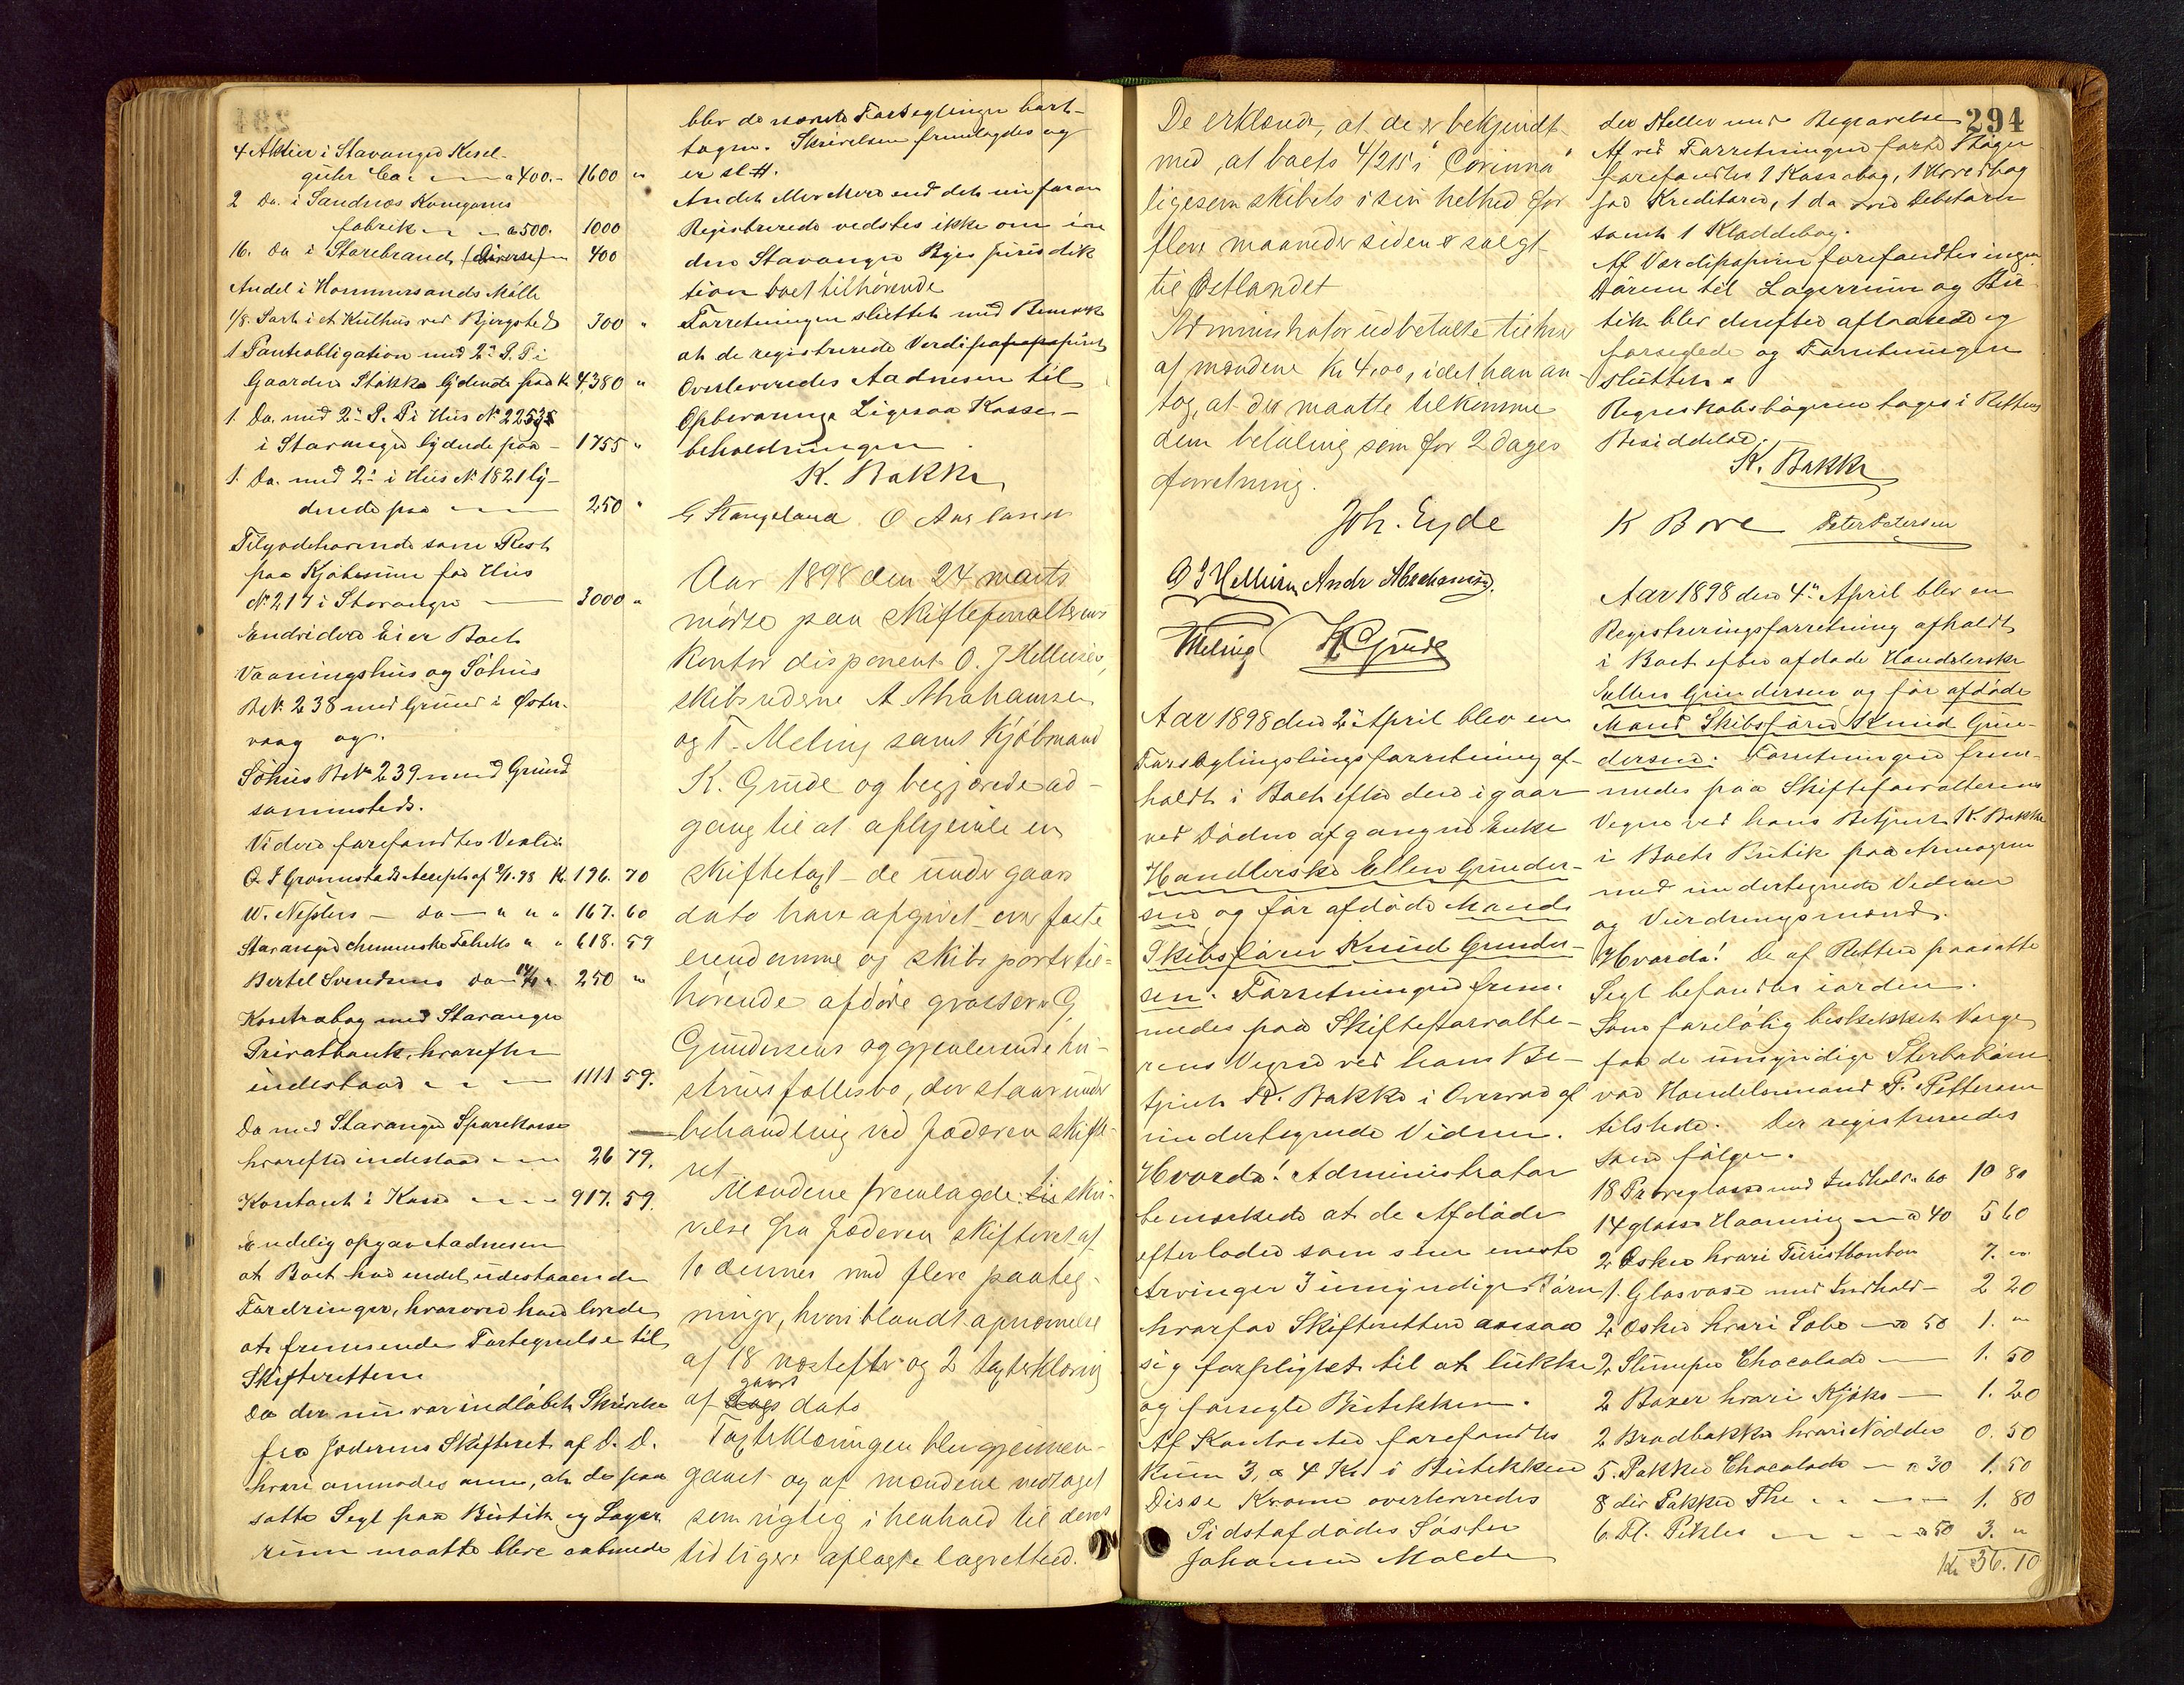 4 Aktier i Stavanger Kesel-
gühr Co. - - - a 400.- 1600 "
2 Do. i Sandnæs Kamgarns
fabrik - - - a 500. 1000
16. Do i Storebrand (diverse) - 400
Andel i Hommersands Mølle
1/8. Part i et Kulhus ved Bjergsted 300 "
1 Panteobligation med 2den P. P i
Gaarden Stokka lydende paa K 4380 "
1. Do. med 2den P. P i Hus No 2253
i Stavanger lydende paa - 1755 "
1. Do. med 2den i Hus No 1821 ly-
dende paa - - - 250 "
Tilgodehavende som Rest
paa Kjøbesum for Hus
No 217 i Stavanger - 3000 "
Endvidere Eier Boet
Vaaningshus og Søhus
BNo. 238 med Grund i Øster-
vaag og.
Søhus BNo 239 med Grund
sammesteds.
Videre forefandtes Vexler
O. J Grønnestads Accept af 2/1. 98 K. 196. 70
W. Nesslers - do - " " " 167. 60
Stavanger chemiske Fabriks " " 618. 59
Bertel Svendsens do 250 "
Kontrabog med Stavanger
Privatbank, hvorefter
indestaar - - - 1111 59.
Do med Stavanger Sparekasse
hvorefter indestaar - - - 26 79.
Kontant i Kasse - - - 917. 59.
Endelig opgav Aadnesen
at Boet har endel udestaaende
Fordringer, hvorover han lovede
at fremsende Fortegnelse til
Skifteretten
Da der nu var indløbet Skrivelse
fra Jæderens Skifteret af D. D.
hvori anmodes om, at de paa
satte Segl paa Butik og Lager
rum maatte blive aabnede
blev de nævnte Forseglinger bort-
tagne. Skrivelsen fremlagdes og
er sl.
Andet eller Mere end det nu foran
Registrerede vedstes ikke om in
den Stavanger Byes jurisdik
tion boet tilhørende
Forretningen sluttet med Bemærk
at de registrerede Verdipapirer
Overleveredes Aadnesen til
Opbevaring Ligesaa Kasse-
beholdningen
K. Bakke
G Stangeland. O Aarland
Aar 1898 den 24 marts
mødte paa Skifteforvalterens
Kontor disponent O. J Hellesen,
skibsrederne A Abrahamsen
og T. Meling samt Kjøbmand
K. Grude og begjærede ad-
gang til at afhjemle en
skiftetaxt - de under gaars
dato have afgivet over faste
eiendomme og skibsparter til-
hørende afdøde grosserer G.
Gundersens og gjenlevende hu-
strues fællesbo, der staar under
behandling ved Jæderen skifte-
ret
Mændene fremlagde skri-
velse fra Jæderen skifteret af
10 dennes med flere paateg-
ninger, hvoriblandt opnævnelse
af 18 næstefter og 2 taxterklæring
af gaars dato
Taxterklæringen blev gjennem-
gaaet og af mændene vedtaget
som rigtig i henhold til deres
tidligere aflagte lagretteed.
De erklærede, at de er bekjendt
med, at boets 4/215 i "Corinna"
ligesom skibets i sin helhed for
flere maaneder siden er solgt
til Østlandet
Administrator udbetalte til hver
af mændene Kr 4,00, idet han an-
tog, at der maatte tilkomme
dem betaling som for 2 dages
forretning.
Joh. Eyde
O J Hellesen Andr Abrahamsen.
TMeling K Grude
Aar 1898 den 2den April blev en
Forseglingslingsforretning af-
holdt i Boet efter den igaar
ved Døden afgangne Enke
Handlerske Ellen Gunder-
sen og før afdøde Mand
Skibsfører Knud Gunder-
sen. Forretningen frem-
medes paa Skifteforvalte-
rens Vegne ved hans Be-
tjent K. Bakke i Overvær af
undertegnede Vidner.
Hvorda! Administrator
bemærkede at de Afdøde
efterlader som sine eneste
Arvinger 3 umyndige Børn
hvorfor Skifteretten ansaa
sig forpligtet til at lukke
og forsegle Butikken.
Af Kontanter forefandtes
kun 3, a 4 Kr. i Butikken
Disse Kroner overleveredes
Sidstafdødes Søster
Johanne Molde
294
der steller med Begravelse
Af ved Forretningen førte Bøger
forefandtes 1 Kassabog, 1 Hovedbog
for Kreditorer, 1 do over Debitorer
samt 1 Kladdebog.
Af Værdipapirer forefandtes ingen
Dørene til Lagerrum og Bu-
tik blev derefter aflaasede og
forseglede og Forretningen
sluttet.
Regnskabsbøgerne toges i Rettens
Besiddelse.
K. Bakke
K Bore Peter Petersen
Aar 1898 den 4de April blev en
Registreringsforretning afholdt
i Boet efter afdøde Handlerske
Ellen Gundersen og før afdøde
Mand Skibsfører Knud Gun-
dersen. Forretningen frem-
medes paa Skifteforvalterens
Vegne ved hans Betjent K. Bakke
i Boets Butik paa
med undertegnede Vidner
og Vurderingsmænd.
Hvorda! De af Retten paasatte
Segl befandtes iorden.
Som foreløbig beskikket Værge
for de umyndige Sterbobørn
var Handelsmand P. Pettersen
tilstede. Der registreredes
som følger.
18 Prøveglasse med Indhold a 60 10 80
14 glasse Honning - a 40 5 60
2 Æsker hvori Turistbonbon 7. "
1. Glasvase med Indhold - 2 20
2 Æsker hvori Sæbe - a 50 1. "
2 Stumper Chocolade - 1. 50
2 Boxer hvori Kjæks - 1. 20
2 Brødbakker hvori Nødder 0. 50
5. Pakker Chocolade - a 30 1. 50
8 div Pakker The - - - 1. 80
6. Fl. Pikles - - - a 50 3. "
Kr 36. 10